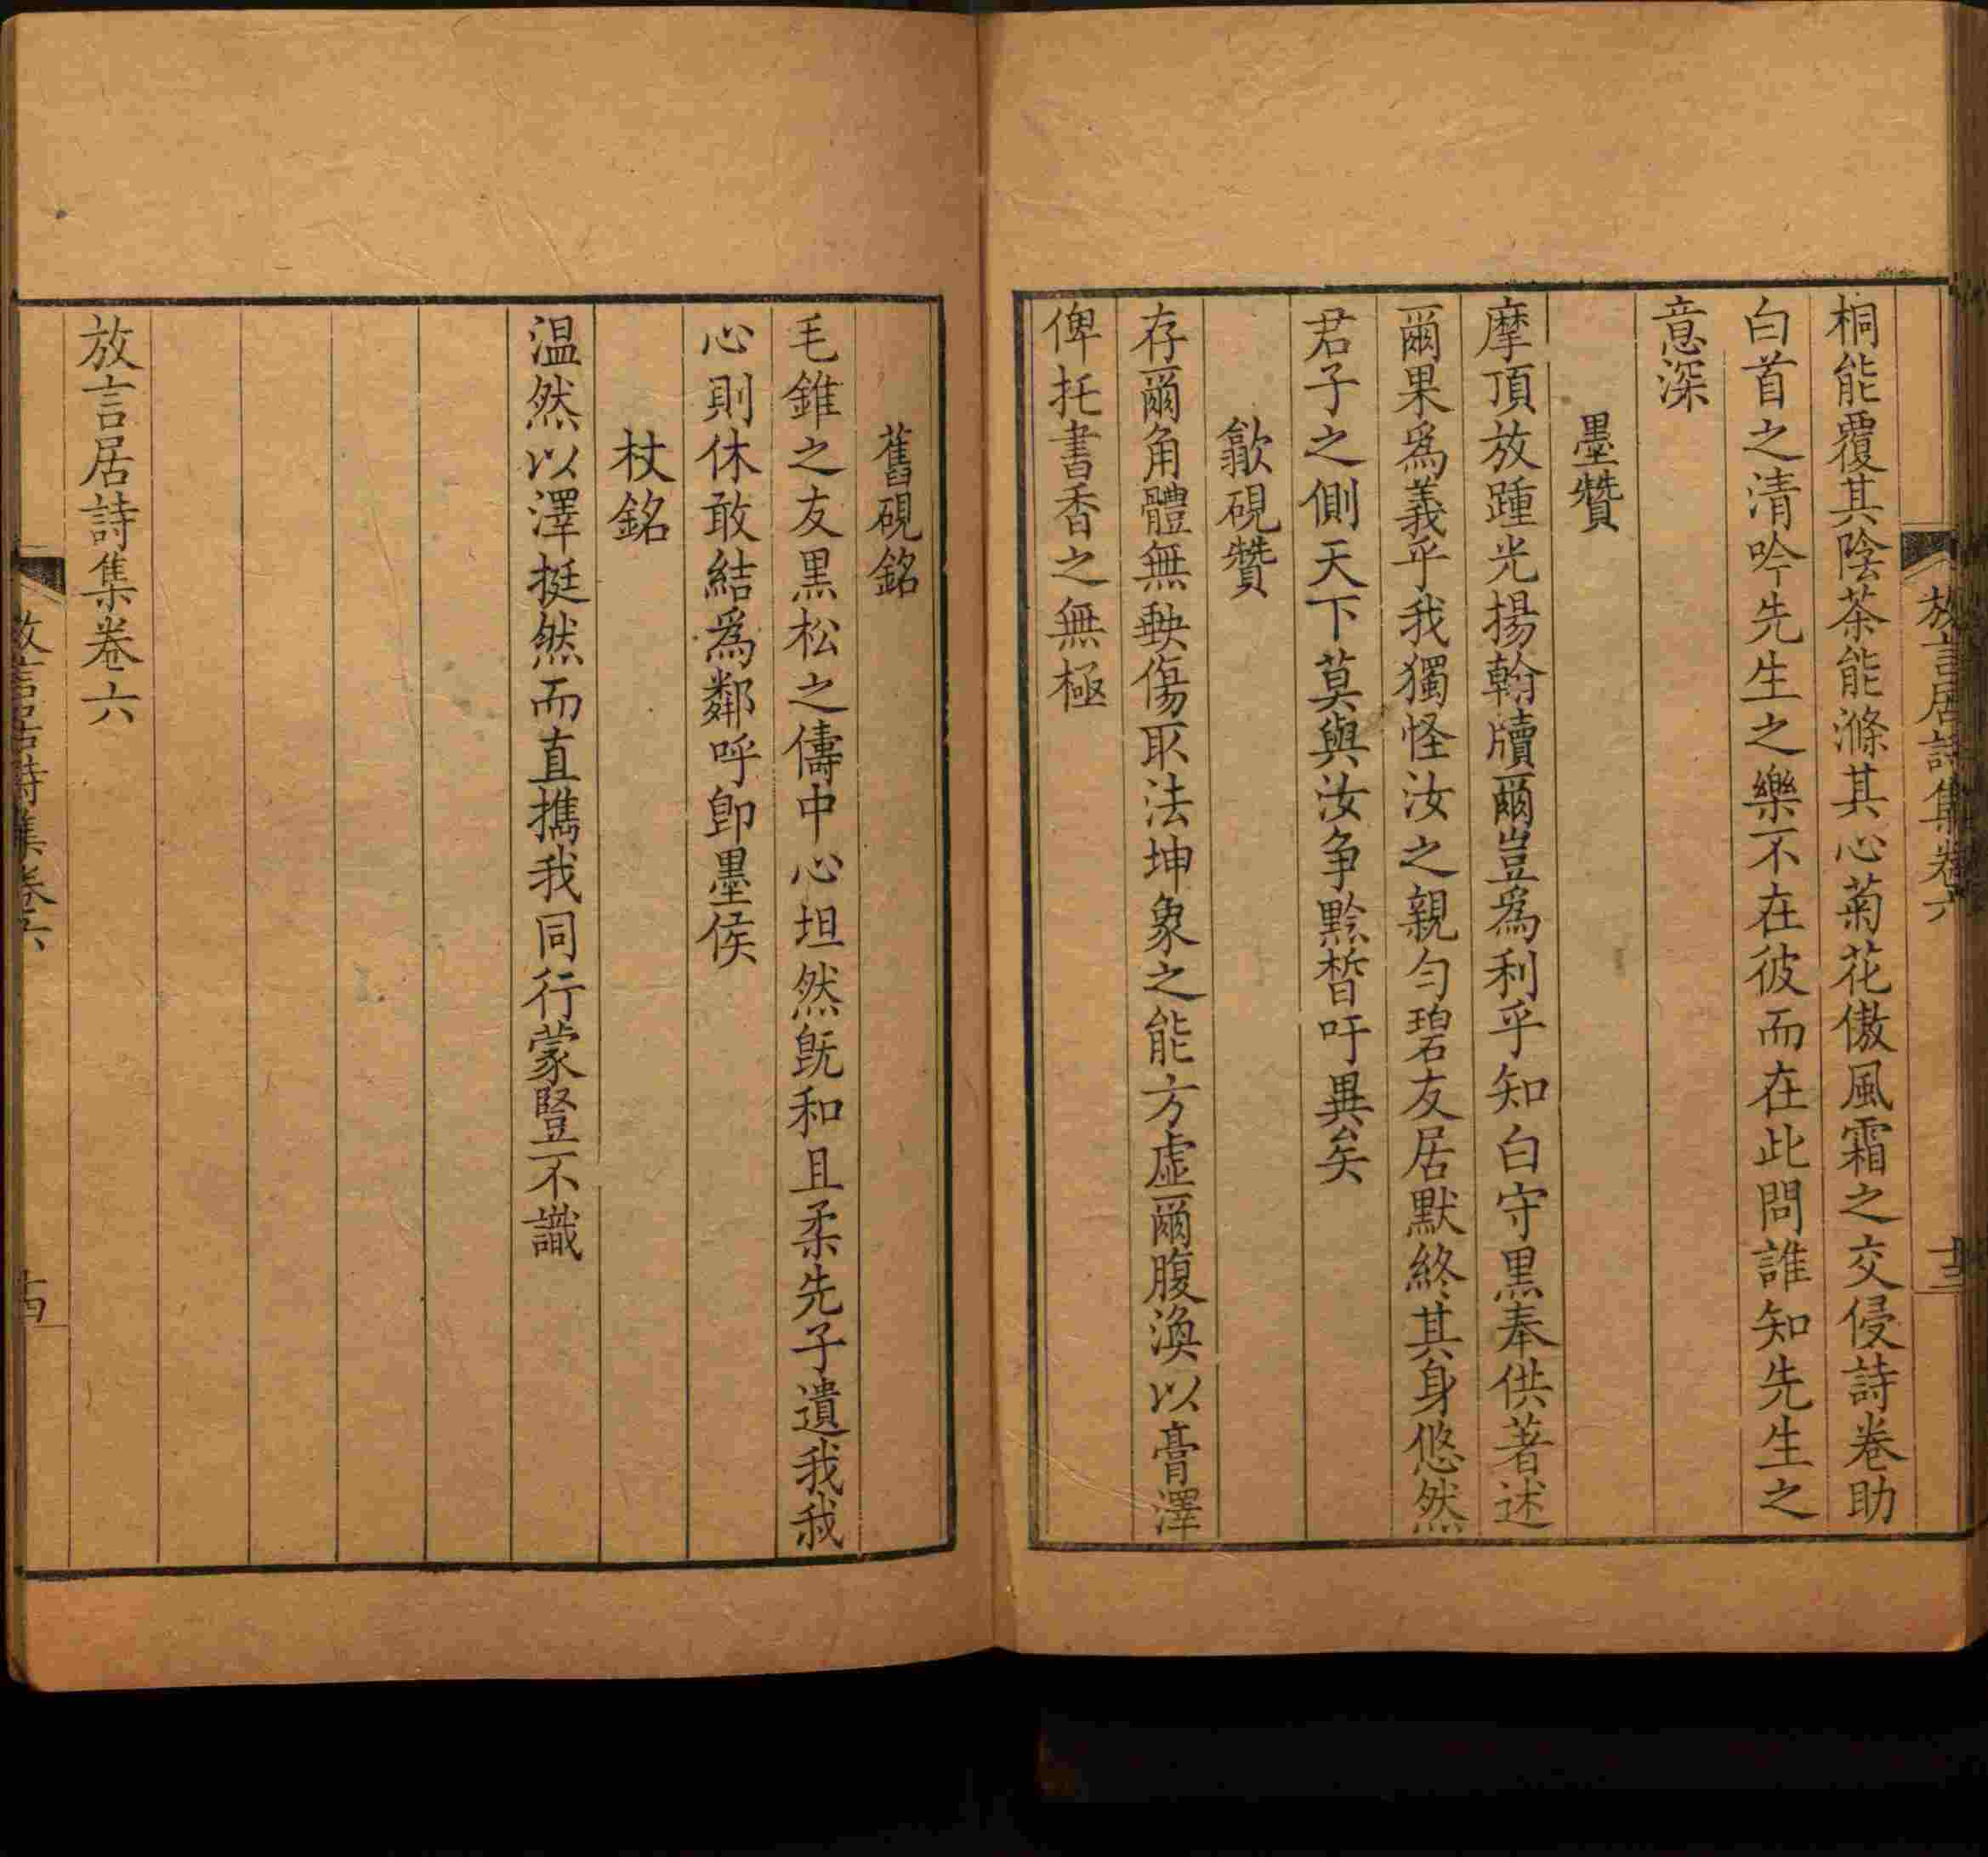 放言居詩集卷六
十三
桐能覆其陰茶能滌其心菊花傲風霜之交侵詩卷助
白首之清吟先生之樂不在彼而在此問誰知先生之
意深
墨贊
摩頂放踵光揚翰牘爾豈爲利乎知白守黑奉供著述
爾果爲義乎我獨怪汝之親勻碧友居默終其身悠然
君子之側天下莫與汝争黔晳吁異矣
歙硯贊
存爾角體無缺傷取法坤象之能方虛爾腹渙以膏澤
俾托書香之無極
舊硯銘
毛錐之友黑松之儔中心坦然旣和且柔先子遺我我
心則休敢結爲鄰呼卽墨侯
杖銘
温然以澤挺然而直携我同行蒙豎不識
放言居詩集卷六
放言居詩集卷六
十四